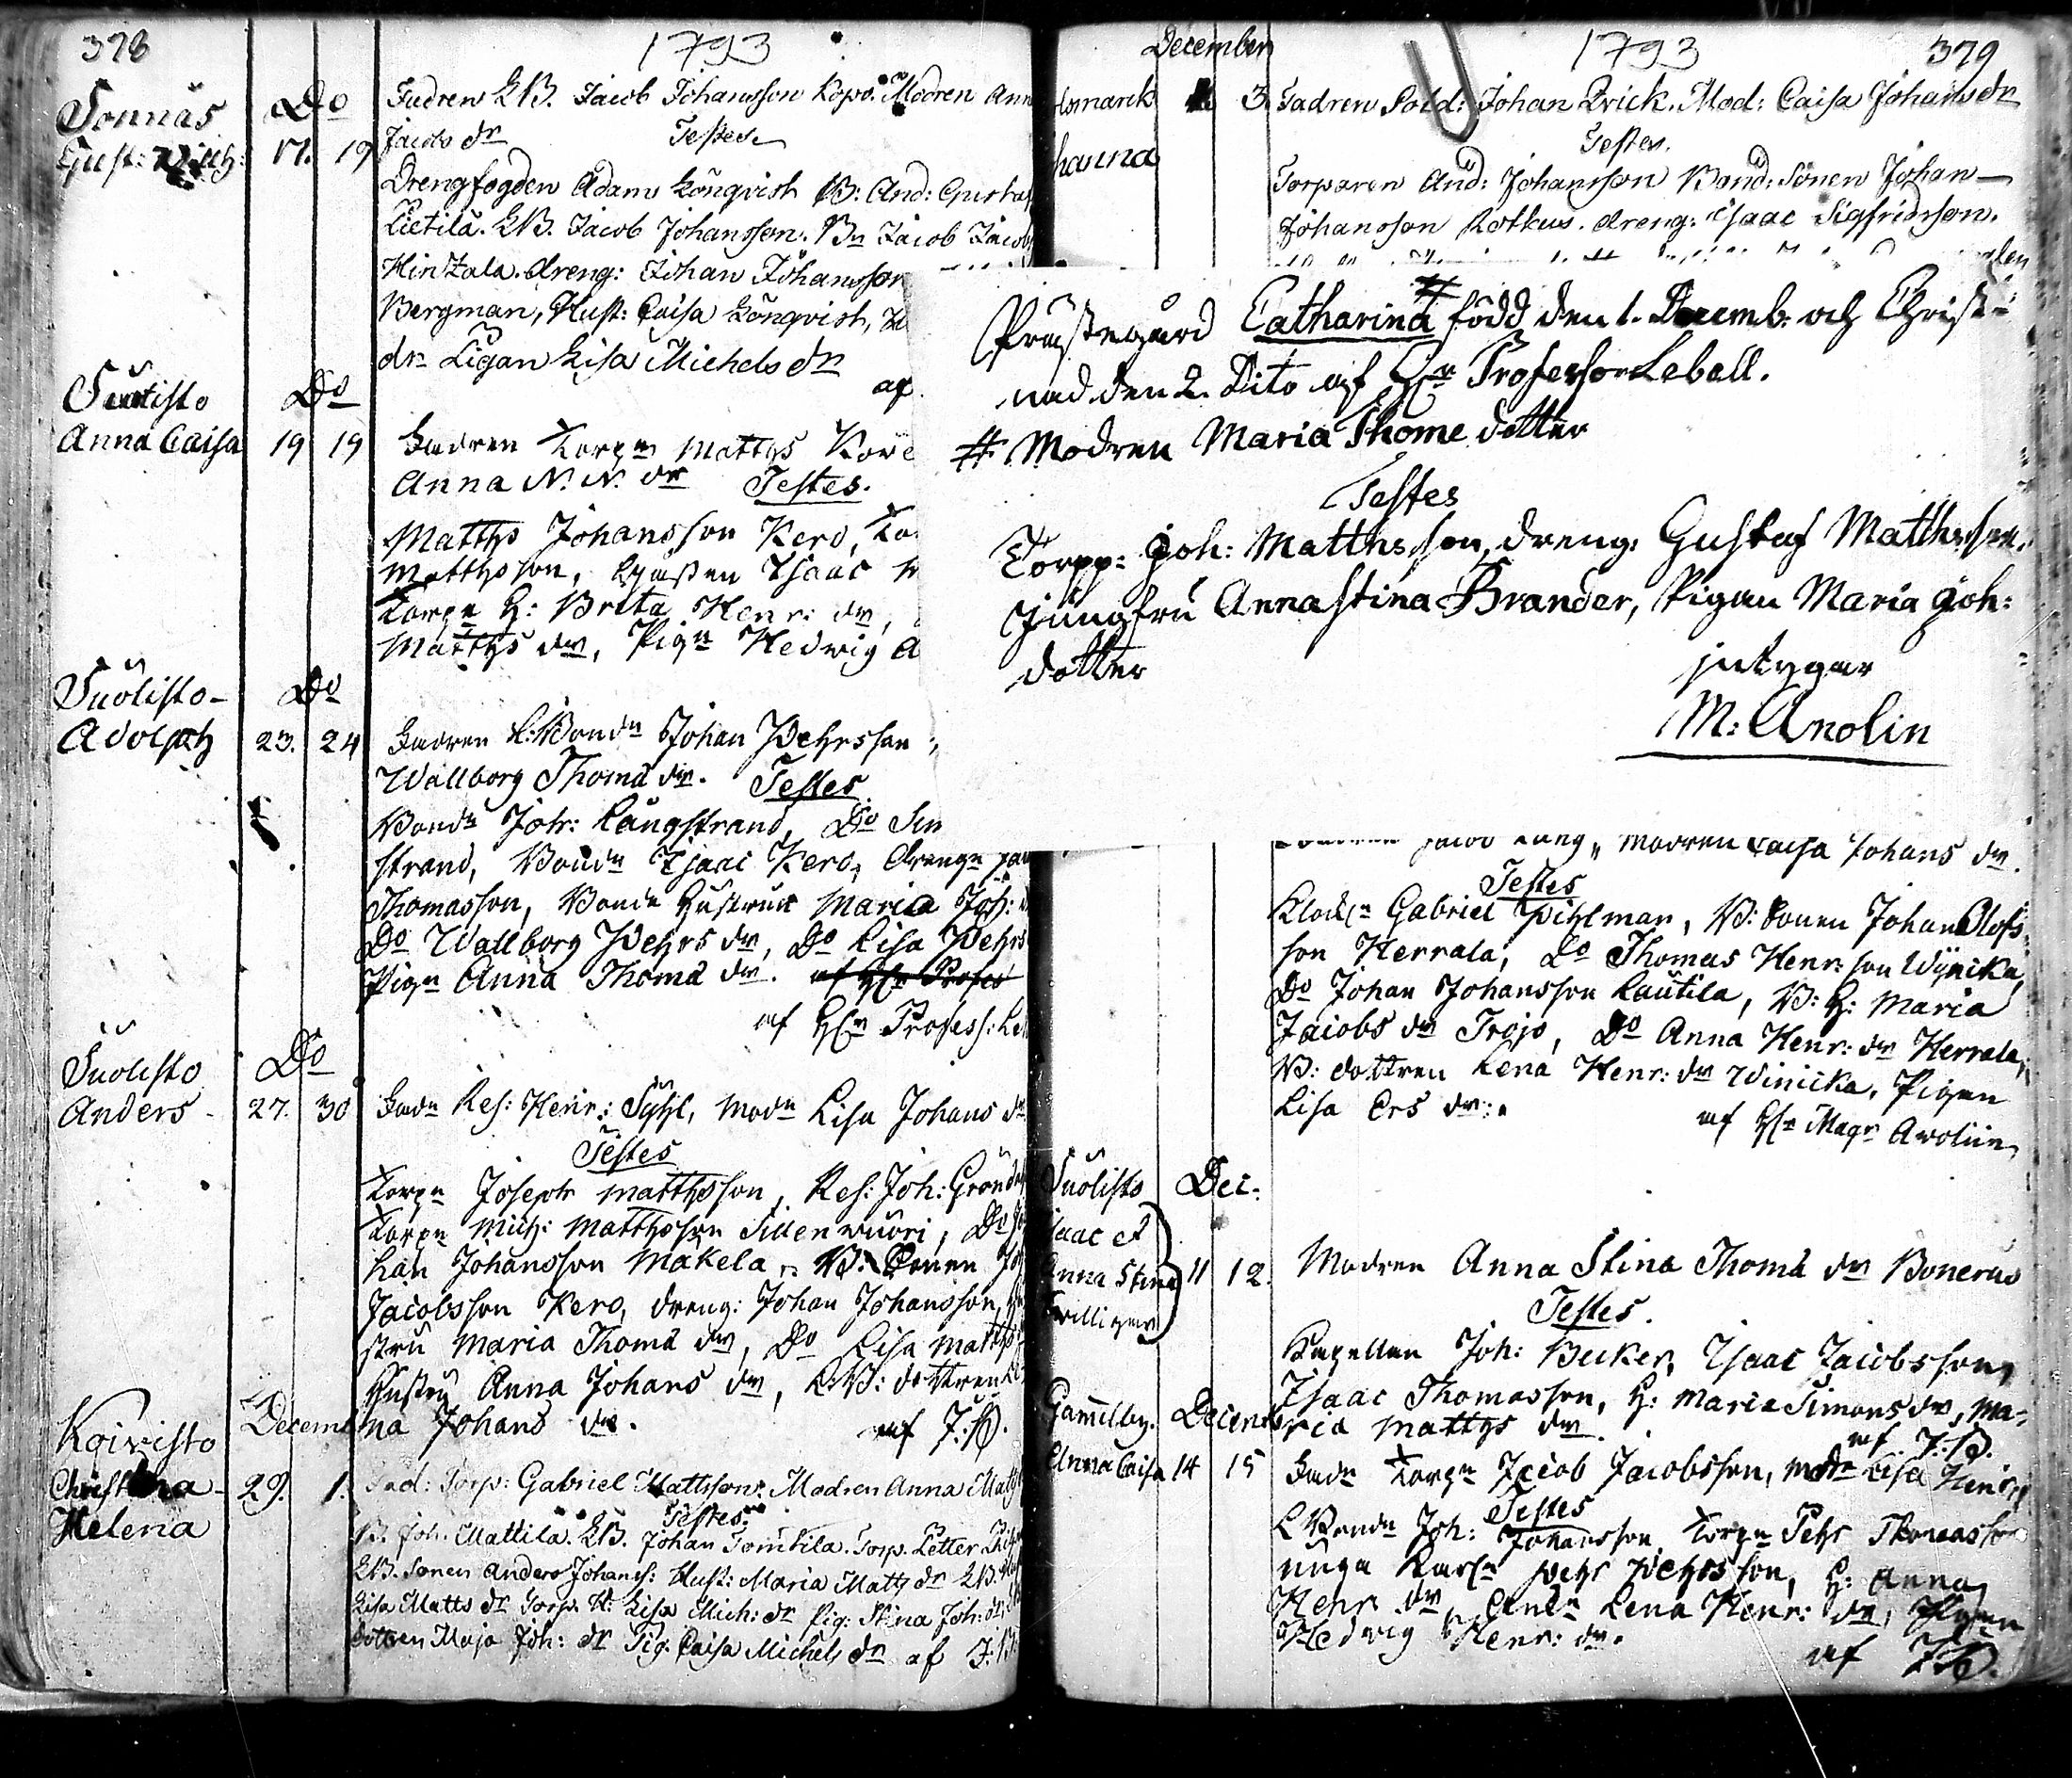 378
1793
Sonnäs
Do
Gust:
17. 19
Fadren LB. Jacob Johansson Kopo. Modren Ann
Jacobs dr Testes
Drengfogden Adam Lönqvist B: And: Gustaf
Lietilä. LB. Jacob Johansson. Bn Jacob Jacob
Hintzala. dreng: Johan Johansson
Bergman, Hust: Caisa Lönqvist,
dr Pigan Lisa Michels dr
af
Suolisto
Do
Anna Caisa 19 19
Fadren Torpn Matths
Anna N. N. dr Testes.
Matths Johansson Kero, To
Matthsson, Isaac
Torpn H: Brita Henr: dr,
Matths dr, Pign Hedwig A
Suolisto-
Do
Adolph 23. 24
Fadren R: Bondn Johan Pehrsson
Wallborg Thomæ dr. Testes
Bondn Joh: Långstrand, Do Sim
strand, Bondn Isaac Kero, drengn
Thomasson, Bonde Hustrun Maria Joh:
Do Wallborg Pehrs dr, Do Lisa Pehrs
Pign Anna Thomæ dr. af Hr Profes
af Hr Profess: Le
Suolisto
Do
Anders - 27. 30
Fadn Res: Henr: Syhl, Modn Lisa Johans dr
Testes
Torpn Joseph Matthsson, Res: Joh: Grönd
Torpn Mich: Matthsson Sillenwuori, Do Jo
han Johansson Mäkelä, B: Sonen Jo
Jacobsson Kero, dreng: Johan Johansson, Hu
stru Maria Thomæ dr, Do Lisa Matths
Hustru Anna Johans dr, LB: dottren Le
na Johans dr. af J:B.
Koivisto
Decemb
Christina - 29. 1.
Helena
Fad: Torp: Gabriel Mattsson. Modren Anna Matts
Testes
B. Joh. Mattila. LB. Johan Tomtila. Torp. Petter
LB. Sonen Anders Johans: Hust: Maria Matts dr LB.
Lisa Matts dr Torp. H: Lisa Mich: dr Pig: Stina Joh: dr
dottren Maja Joh: dr Pig. Caisa Michels dr af J:B.
December
1793
379
lsmarck 3. Fadren Sold: Johan Brick. Mod: Caisa Johans dr
hanna
Testes.
Torparen And: Johansson Bond: Sonen Johan
Johansson Rotkus. dreng: Isaac Sigfridsson.
Prästegård Catharina # född den 1. Decemb. och Christ-
nad den 2. Dito af Hr Professor Lebell.
# Modren Maria Thome dotter
Testes
Torpp: Joh: Matthsson, dreng: Gustaf Matthsson.
Jungfru Anna Stina Brander, Pigan Maria Joh:
dotter
intygar
M: Arolin
Jacob Lång, Modren Caisa Johans dr.
Testes
Klockn Gabriel Pihlman, B: Sonen Johan Olofs
son Herrala, Do Thomas Henr: son Wijnicka,
Do Johan Johansson Lautila, B: H: Maria
Jacobs dr Trojo, Do Anna Henr: dr Herrala,
B: dottren Lena Henr: dr Winicka, Pigan
Lisa Ers dr.
af Hr Magr Arolin
Suolisto
Dec:
Isaac et
Anna Stina 11 12.
Twillingar
Modren Anna Stina Thomæ dr Bonerus
Testes.
Capellan Joh: Becker, Isaac Jacobsson,
Isaac Thomasson, H: Maria Simons dr, Ma-
ria Matths dr.
af J:B.
Gamelby.
Decemb
Anna Caisa 14 15
Fadn Torpn Jacob Jacobsson, Modn Lisa Henr:
Testes
L Bondn Joh: Johansson, Torpn Pehr Thomasson
unga Karln Pehr Pehrsson, H: Anna
Henr: dr, Lena Henr: dr, Pigan
Hedwig Henr: dr.
af J:B.